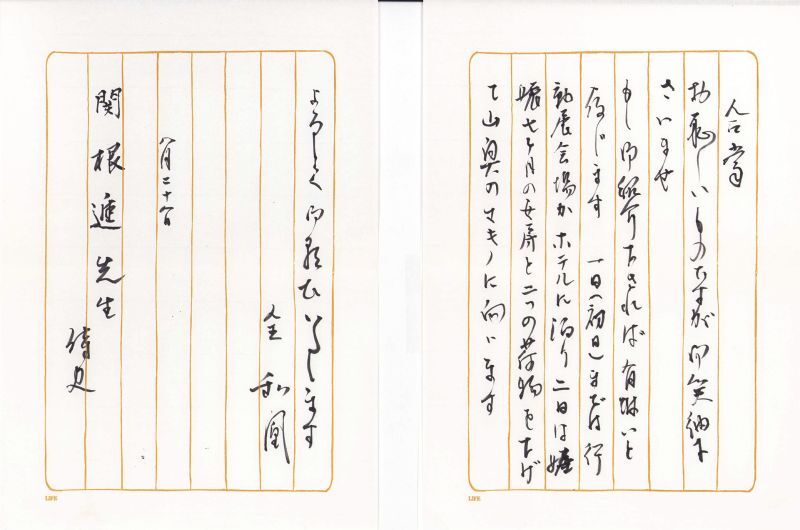 合掌
お恥しいものですが御笑納下
さいませ
もし御紹介下されば有難いと
存じます 一日(初日)までは行
動展会場かホテルに泊り 二日は
娠七ヶ月の女房と二つの荷物を下げ
て山奥のマキノに向います
よろしく御願いいたします
金 和
八月二十
関根 先生
侍史
LIFE
LIFE